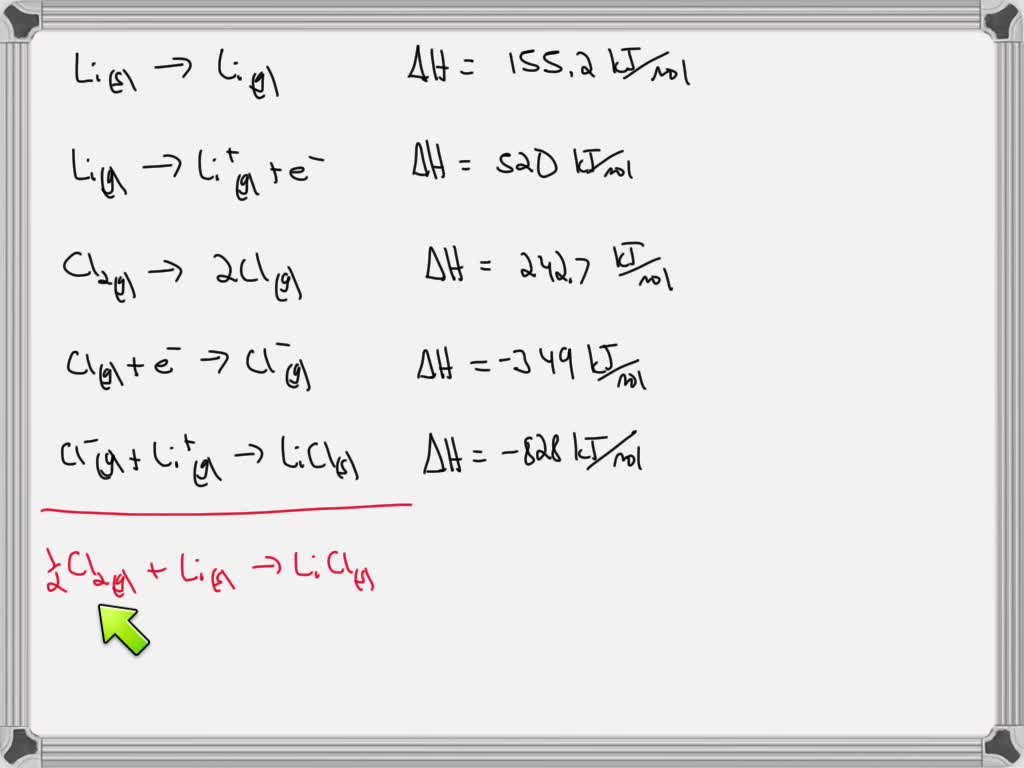 Li(s) → Li(g) ΔH = 155.2 kJ/mol
Li(g) → Li⁺(g) + e⁻ ΔH = 520 kJ/mol
Cl₂(g) → 2Cl(g) ΔH = 242.7 kJ/mol
Cl(g) + e⁻ → Cl⁻(g) ΔH = -349 kJ/mol
Cl⁻(g) + Li⁺(g) → LiCl(s) ΔH = -828 kJ/mol
½Cl₂(g) + Li(s) → LiCl(s)